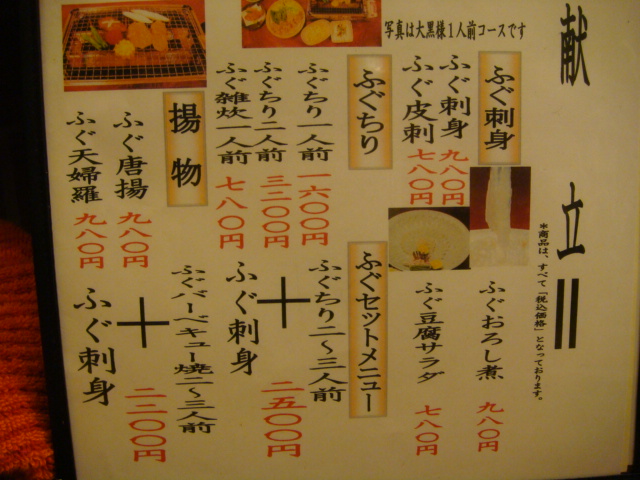 献立
写真は大黒様1人前コースです
＊商品は、すべて「税込価格」となっております。
ふぐ刺身
ふぐ刺身 九八〇円
ふぐ皮刺 七八〇円
ふぐおろし煮 九八〇円
ふぐ豆腐サラダ 七八〇円
ふぐちり
ふぐちり一人前 一六〇〇円
ふぐちり二人前 三二〇〇円
ふぐ雑炊一人前 七八〇円
揚物
ふぐ唐揚 九八〇円
ふぐ天婦羅 九八〇円
ふぐセットメニュー
ふぐちり二～三人前
＋
ふぐ刺身
二五〇〇円
ふぐバーベキュー焼二～三人前
＋
ふぐ刺身
二二〇〇円